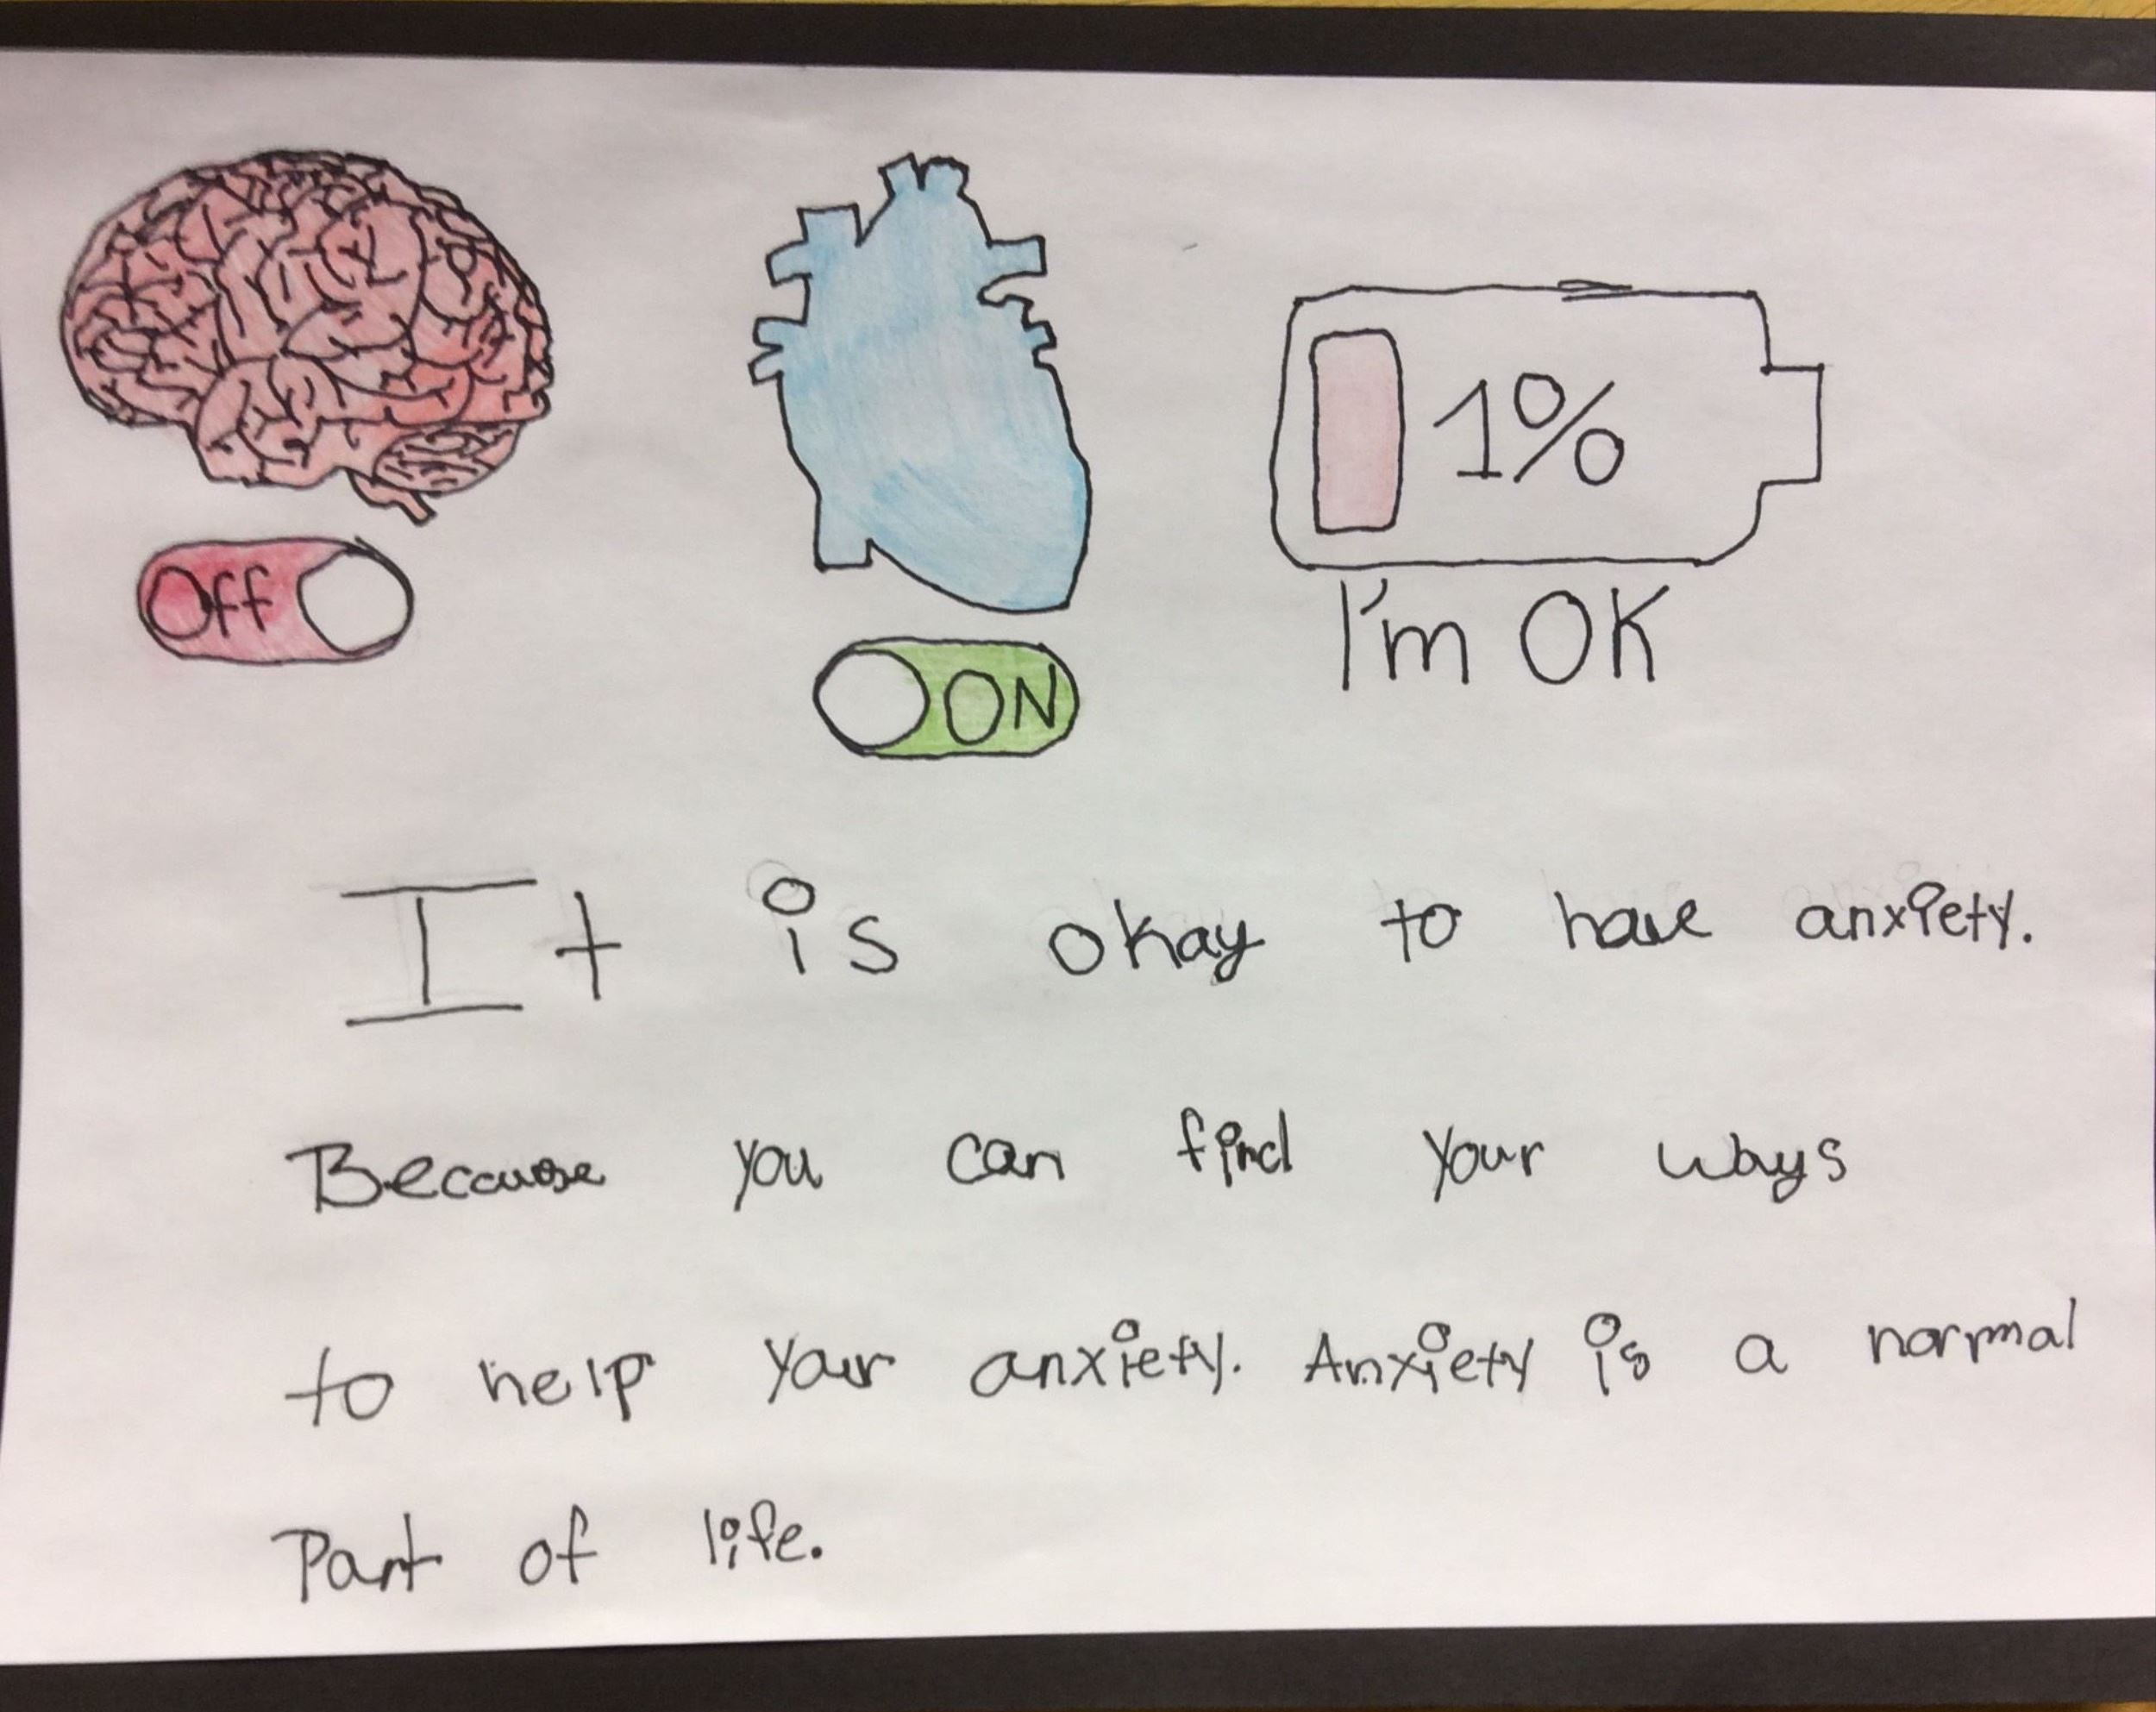 Off
ON
1%
I'm OK
It is okay to have anxiety.
Because you can find your ways
to help your anxiety. Anxiety is a normal
Part of life.